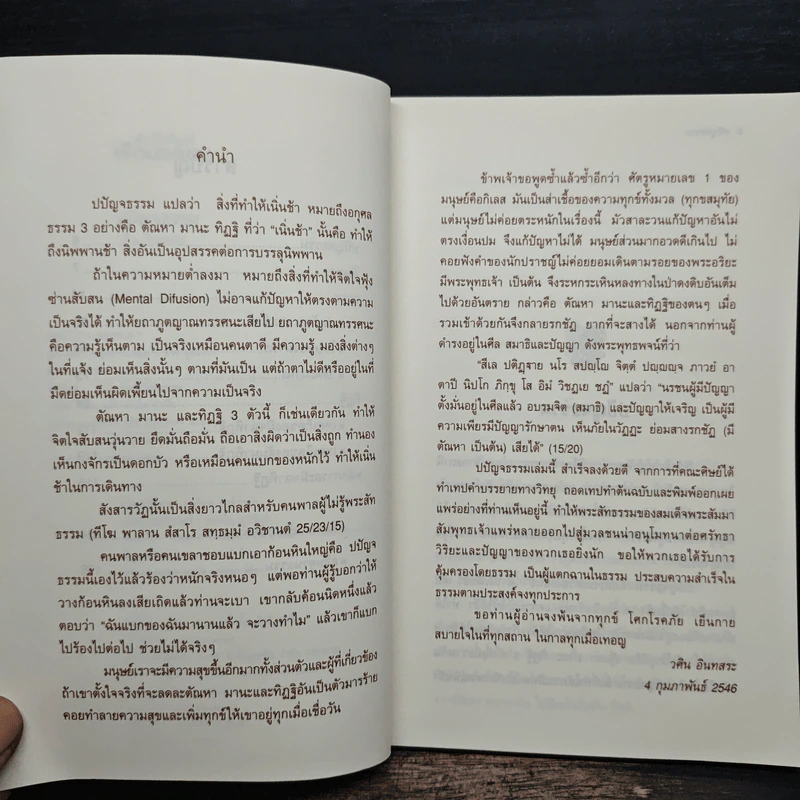 คำนำ
ปปัญจธรรม แปลว่า สิ่งที่ทำให้เนิ่นช้า หมายถึงอกุศล
ธรรม 3 อย่างคือ ตัณหา มานะ ทิฏฐิ ที่ว่า “เนิ่นช้า” นั้นคือ ทำให้
ถึงนิพพานช้า สิ่งอันเป็นอุปสรรคต่อการบรรลุนิพพาน
ถ้าในความหมายต่ำลงมา หมายถึงสิ่งที่ทำให้จิตใจฟุ้ง
ซ่านสับสน (Mental Difusion) ไม่อาจแก้ปัญหาให้ตรงตามความ
เป็นจริงได้ ทำให้ยถาภูตญาณทรรศนะเสียไป ยถาภูตญาณทรรศนะ
คือความรู้เห็นตาม เป็นจริงเหมือนคนตาดี มีความรู้ มองสิ่งต่างๆ
ในที่แจ้ง ย่อมเห็นสิ่งนั้นๆ ตามที่มันเป็น แต่ถ้าตาไม่ดีหรืออยู่ในที่
มืดย่อมเห็นผิดเพี้ยนไปจากความเป็นจริง
ตัณหา มานะ และทิฏฐิ 3 ตัวนี้ ก็เช่นเดียวกัน ทำให้
จิตใจสับสนวุ่นวาย ยึดมั่นถือมั่น ถือเอาสิ่งผิดว่าเป็นสิ่งถูก ทำนอง
เห็นกงจักรเป็นดอกบัว หรือเหมือนคนแบกของหนักไว้ ทำให้เนิ่น
ช้าในการเดินทาง
สังสารวัฏนั้นเป็นสิ่งยาวไกลสำหรับคนพาลผู้ไม่รู้พระสัท
ธรรม (ทีโฆ พาลาน สํสาโร สทฺธมฺมํ อวิชานตํ 25/23/15)
คนพาลหรือคนเขลาชอบแบกเอาก้อนหินใหญ่คือ ปปัญจ
ธรรมนี้เองไว้แล้วร้องว่าหนักจริงหนอๆ แต่พอท่านผู้รู้บอกว่าให้
วางก้อนหินลงเสียเถิดแล้วท่านจะเบา เขากลับค้อนนิดหนึ่งแล้ว
ตอบว่า “ฉันแบกของฉันมานานแล้ว จะวางทำไม” แล้วเขาก็แบก
ไปร้องไปต่อไป ช่วยไม่ได้จริงๆ
มนุษย์เราจะมีความสุขขึ้นอีกมากทั้งส่วนตัวและผู้ที่เกี่ยวข้อง
ถ้าเขาตั้งใจจริงที่จะลดละตัณหา มานะและทิฏฐิอันเป็นตัวมารร้าย
คอยทำลายความสุขและเพิ่มทุกข์ให้เขาอยู่ทุกเมื่อเชื่อวัน
ข้าพเจ้าขอพูดซ้ำแล้วซ้ำอีกว่า ศัตรูหมายเลข 1 ของ
มนุษย์คือกิเลส มันเป็นส่าเชื้อของความทุกข์ทั้งมวล (ทุกขสมุทัย)
แต่มนุษย์ไม่ค่อยตระหนักในเรื่องนี้ มัวสาละวนแก้ปัญหาอันไม่
ตรงเงื่อนปม จึงแก้ปัญหาไม่ได้ มนุษย์ส่วนมากอวดดีเกินไป ไม่
คอยฟังคำของนักปราชญ์ไม่ค่อยยอมเดินตามรอยของพระอริยะ
มีพระพุทธเจ้า เป็นต้น จึงระหกระเหินหลงทางในป่าดงดิบอันเต็ม
ไปด้วยอันตราย กล่าวคือ ตัณหา มานะและทิฏฐิของตนๆ เมื่อ
รวมเข้าด้วยกันจึงกลายรกชัฏ ยากที่จะสางได้ นอกจากท่านผู้
ดำรงอยู่ในศีล สมาธิและปัญญา ดังพระพุทธพจน์ที่ว่า
“สีเล ปติฏฺฐาย นโร สปญฺโญ จิตฺตํ ปญฺญญฺจ ภาวยํ อา
ตาปี นิปโก ภิกฺขุ โส อิมํ วิชฏเย ชฏํ” แปลว่า “นรชนผู้มีปัญญา
ตั้งมั่นอยู่ในศีลแล้ว อบรมจิต (สมาธิ) และปัญญาให้เจริญ เป็นผู้มี
ความเพียรมีปัญญารักษาตน เห็นภัยในวัฏฏะ ย่อมสางรกชัฏ (มี
ตัณหา เป็นต้น) เสียได้” (15/20)
ปปัญจธรรมเล่มนี้ สำเร็จลงด้วยดี จากการที่คณะศิษย์ได้
ทำเทปคำบรรยายทางวิทยุ ถอดเทปทำต้นฉบับและพิมพ์ออกเผย
แพร่อย่างที่ท่านเห็นอยู่นี้ ทำให้พระสัทธรรมของสมเด็จพระสัมมา
สัมพุทธเจ้าแพร่หลายออกไปสู่มวลชนน่าอนุโมทนาต่อศรัทธา
วิริยะและปัญญาของพวกเธอยิ่งนัก ขอให้พวกเธอได้รับการ
คุ้มครองโดยธรรม เป็นผู้แตกฉานในธรรม ประสบความสำเร็จใน
ธรรมตามประสงค์จงทุกประการ
ขอท่านผู้อ่านจงพ้นจากทุกข์ โศกโรคภัย เย็นกาย
สบายใจในที่ทุกสถาน ในกาลทุกเมื่อเทอญ
วศิน อินทสระ
4 กุมภาพันธ์ 2546